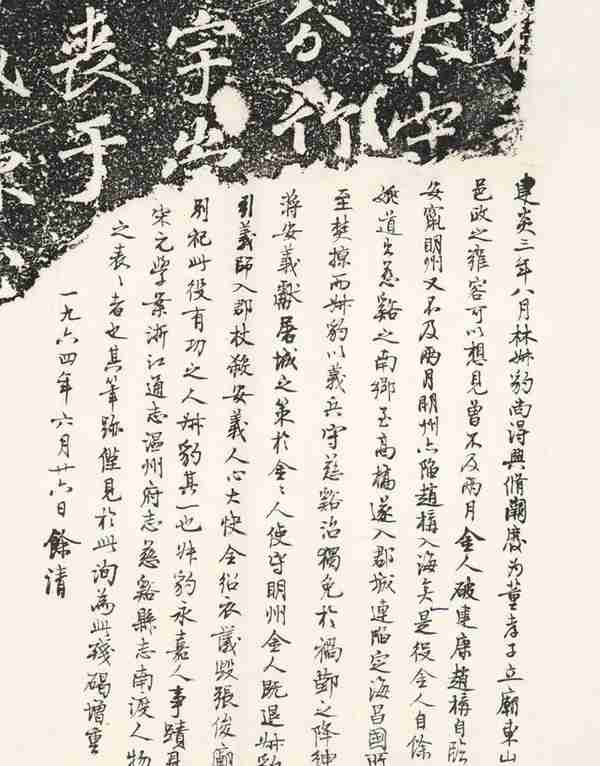 太守
分竹
喪于
建炎三年八月林叔豹尚得與脩潮慶為董孝子立廟東山
邑政之雍容可以想見曾不及兩月金人破建康趙構自臨
安竄明州又不及兩月明州亦陷趙構入海矣是役金人自餘
姚道出慈谿之南鄉至高橋遂入郡城連陷定海昌國所
至焚掠而叔豹以義兵守慈谿治獨免於禍鄞之降紳
蔣安義獻屠城之策於金〻人使守明州金人既退叔豹
引義師入郡杖殺安義人心大快全紹衣議毀張俊廟
別祀此役有功之人叔豹其一也叔豹永嘉人事蹟見
宋元學案浙江通志溫州府志慈谿縣志南渡人物
之表〻者也其筆跡僅見於此洵為此殘碣增重
一九六四年六月廿六日餘清